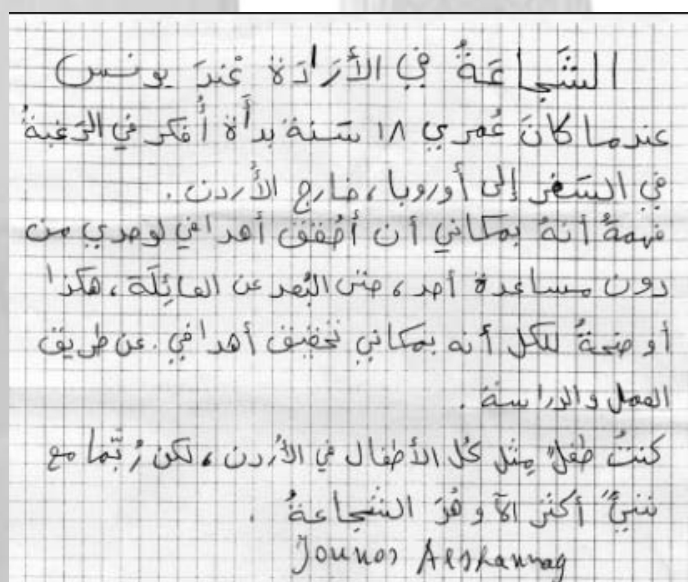 الشَجاعَةُ في الأرَادَة عْندَ يونس
عندما كانَ عُمري ١٨ سَنة بدأة أُفكر في الرَغبةُ
في السَفر إلى أوروبا، خارج الأُردن.
فهمةُ أنهُ بمكاني أن أُحقق أهدافي لوحدي من
دون مساعدة أحد، حتى البُعد عن العائِلَة، هكذا
أوضحةُ للكل أنه بمكاني تحقيق أهدافي. عن طريق
العمل والدراسة.
كنتُ طفلً مِثل كُل الأطفال في الأُردن، لكن رُبَّما مع
شيئً أكثر الآ وهُوَ الشجاعةُ.
Jounos